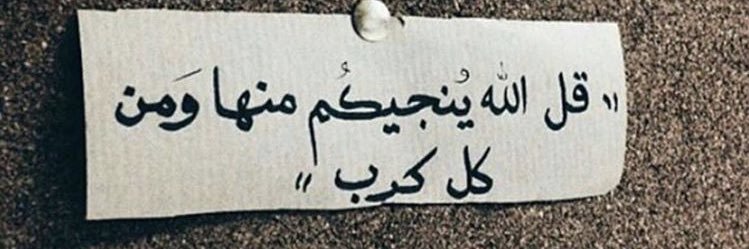 " قل الله يُنجيكُم منها وَمن
كل كرب "